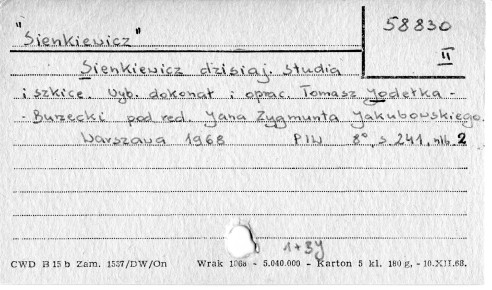 "Sienkiewicz"
58830
II
Sienkiewicz dzisiaj. Studia
i szkice. Wyb. dokonał i oprac. Tomasz Jodełka-
-Burzecki pod red. Jana Zygmunta Jakubowskiego.
Warszawa 1968 PIW 8°, s. 241, nlb 2
1+3y
CWD B 15 b Zam. 1557/DW/On Wrak 106a - 5.040.000 - Karton 5 kl. 180 g, - 10.XII.63.